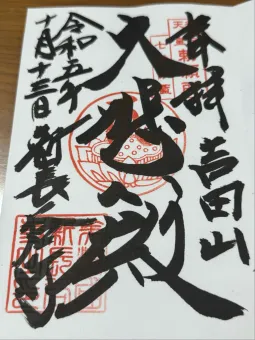 奉拝
吉田山
大悲殿
令和五年
十月十三日
新長谷寺